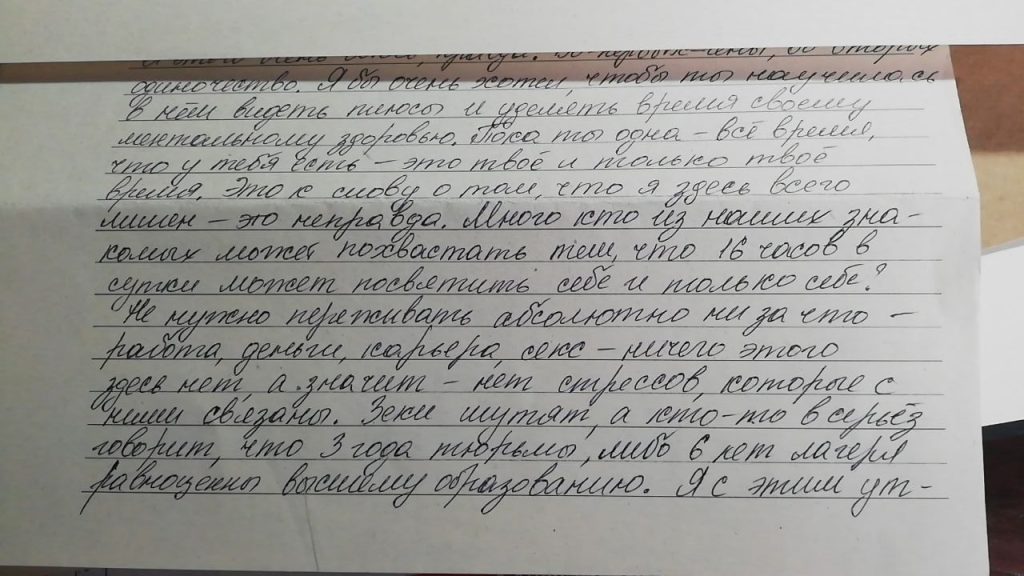 очень
одиночество. Я бы очень хотел, чтобы ты научилась
в нём видеть плюсы и уделять время своему
ментальному здоровью. Пока ты одна – всё время,
что у тебя есть – это твоё и только твоё
время. Это к слову о том, что я здесь всего
лишен – это неправда. Много кто из наших зна-
комых может похвастать тем, что 16 часов в
сутки может посвятить себе и только себе?
Не нужно переживать абсолютно ни за что –
работа, деньги, карьера, секс – ничего этого
здесь нет, а значит – нет стрессов, которые с
ними связаны. Зеки шутят, а кто-то всерьёз
говорит, что 3 года тюрьмы, либо 6 лет лагеря
равноценны высшему образованию. Я с этим ут-